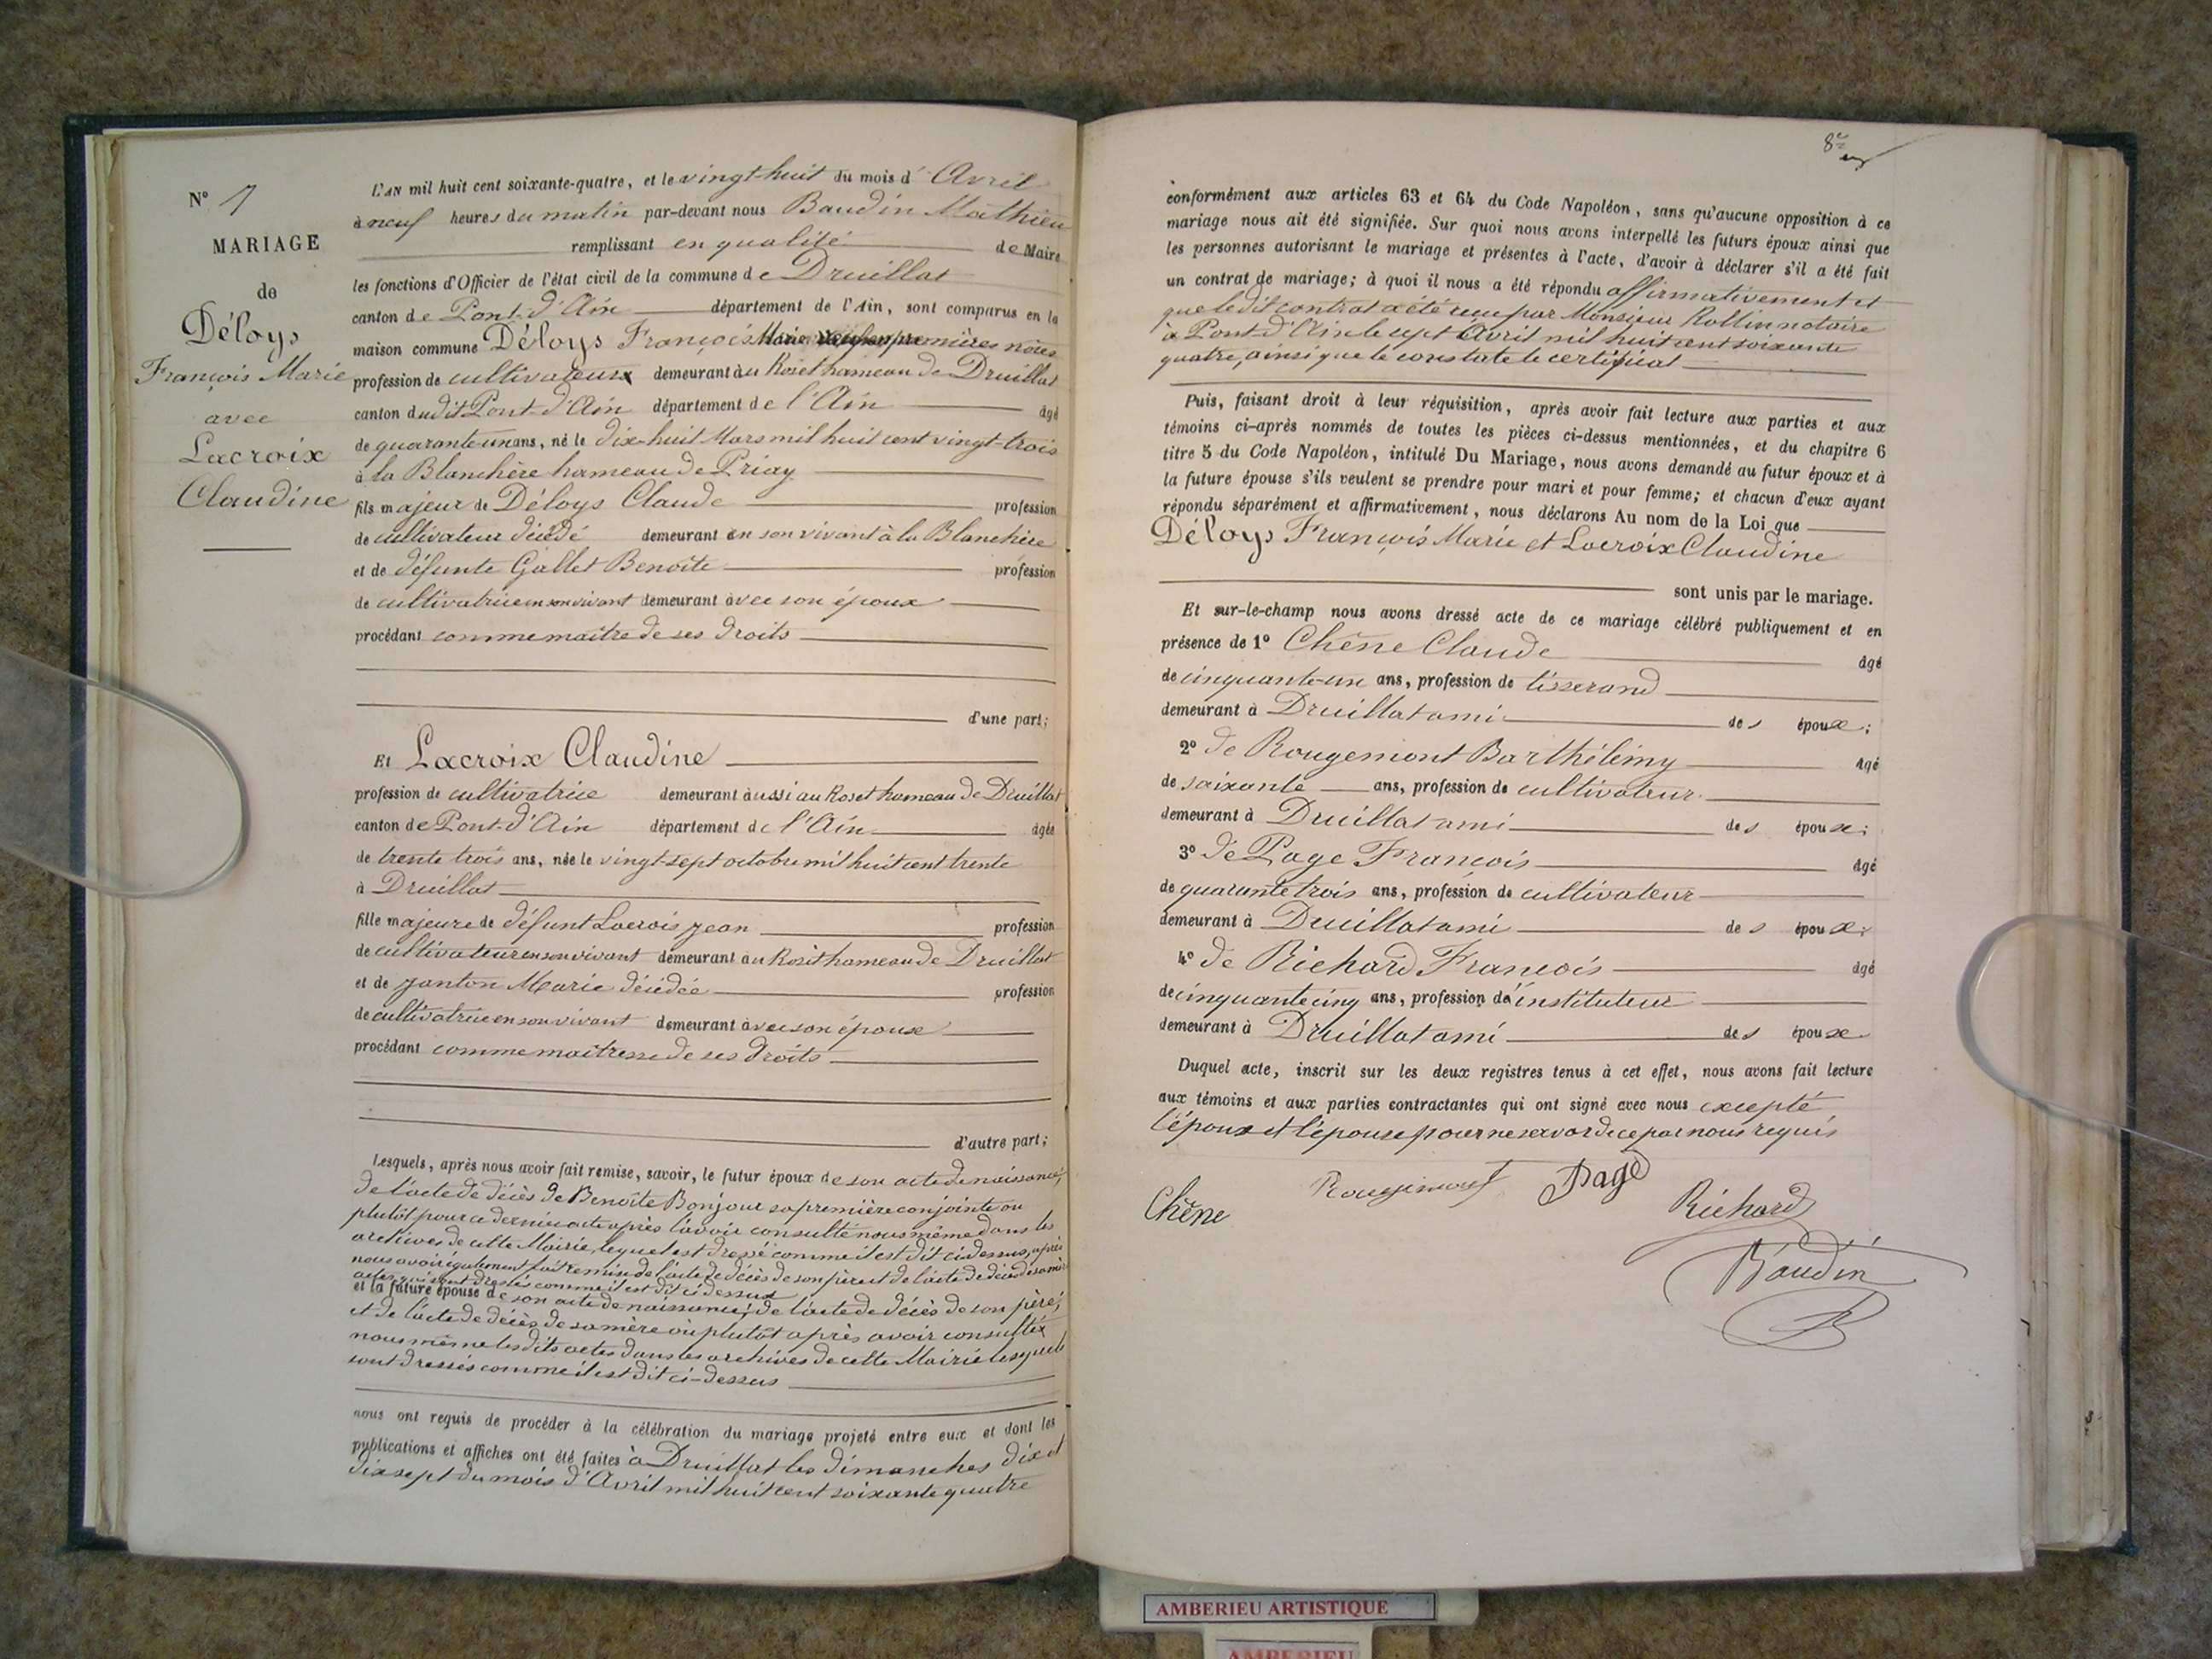 N° 7
MARIAGE
de
Déloys
François Marie
avec
Lacroix
Claudine
L'AN mil huit cent soixante-quatre, et le vingt-huit du mois d'Avril
à neuf heures du matin par-devant nous Baudin Mathieu
remplissant en qualité de Maire
les fonctions d'Officier de l'état civil de la commune de Druillat
canton de Pont-d'Ain département de l'Ain, sont comparus en la
maison commune Déloys François Marie, premières noces
profession de cultivateur demeurant au Roset hameau de Druillat
canton dudit Pont-d'Ain département de l'Ain âgé
de quarante-un ans, né le dix-huit Mars mil huit cent vingt-trois
à la Blanchère hameau de Priay
fils majeur de Déloys Claude profession
de cultivateur décédé demeurant en son vivant à la Blanchère
et de défunte Gallet Benoîte profession
de cultivatrice en son vivant demeurant avec son époux
procédant comme maître de ses droits
d'une part;
Et Lacroix Claudine
profession de cultivatrice demeurant aussi au Roset hameau de Druillat
canton de Pont-d'Ain département de l'Ain âgée
de trente trois ans, née le vingt-sept octobre mil huit cent trente
à Druillat
fille majeure de défunt Lacroix jean profession
de cultivateur en son vivant demeurant au Roset hameau de Druillat
et de janton Marie décédée profession
de cultivatrice en son vivant demeurant avec son époux
procédant comme maîtresse de ses droits
d'autre part;
Lesquels, après nous avoir fait remise, savoir, le futur époux de son acte de naissance,
de l'acte de décès de Benoîte Bonjour sa première conjointe ou
plutôt pour ce dernier acte après l'avoir consulté nous même dans les
archives de cette Mairie, lequel est dressé comme il est dit ci-dessus, après
nous avoir également fait remise de l'acte de décès de son père et de l'acte de décès de sa mère
actes qui sont dressés comme il est dit ci-dessus
et la future épouse de son acte de naissance, de l'acte de décès de son père,
et de l'acte de décès de sa mère ou plutôt après avoir consulté
nous même les dits actes dans les archives de cette Mairie lesquels
sont dressés comme il est dit ci-dessus
nous ont requis de procéder à la célébration du mariage projeté entre eux et dont les
publications et affiches ont été faites à Druillat les dimanches dix et
dix sept du mois d'Avril mil huit cent soixante quatre
8e
conformément aux articles 63 et 64 du Code Napoléon, sans qu'aucune opposition à ce
mariage nous ait été signifiée. Sur quoi nous avons interpellé les futurs époux ainsi que
les personnes autorisant le mariage et présentes à l'acte, d'avoir à déclarer s'il a été fait
un contrat de mariage; à quoi il nous a été répondu affirmativement et
que ledit contrat a été reçu par Monsieur Rollin notaire
à Pont-d'Ain le sept Avril mil huit cent soixante
quatre, ainsi que le constate le certificat
Puis, faisant droit à leur réquisition, après avoir fait lecture aux parties et aux
témoins ci-après nommés de toutes les pièces ci-dessus mentionnées, et du chapitre 6
titre 5 du Code Napoléon, intitulé Du Mariage, nous avons demandé au futur époux et à
la future épouse s'ils veulent se prendre pour mari et pour femme; et chacun d'eux ayant
répondu séparément et affirmativement, nous déclarons Au nom de la Loi que
Déloys François Marie et Lacroix Claudine
sont unis par le mariage.
Et sur-le-champ nous avons dressé acte de ce mariage célébré publiquement et en
présence de 1° Chêne Claude âgé
de cinquante-un ans, profession de tisserand
demeurant à Druillat ami des époux;
2° de Rougemont Barthélemy âgé
de soixante ans, profession de cultivateur
demeurant à Druillat ami des époux;
3° de Page François âgé
de quarante trois ans, profession de cultivateur
demeurant à Druillat ami des époux;
4° de Richard François âgé
de cinquante cinq ans, profession d'instituteur
demeurant à Druillat ami des époux
Duquel acte, inscrit sur les deux registres tenus à cet effet, nous avons fait lecture
aux témoins et aux parties contractantes qui ont signé avec nous excepté
l'époux et l'épouse pour ne savoir de ce par nous requis
Chêne Rougemont Page Richard
Baudin
B
AMBERIEU ARTISTIQUE
AMBERIEU